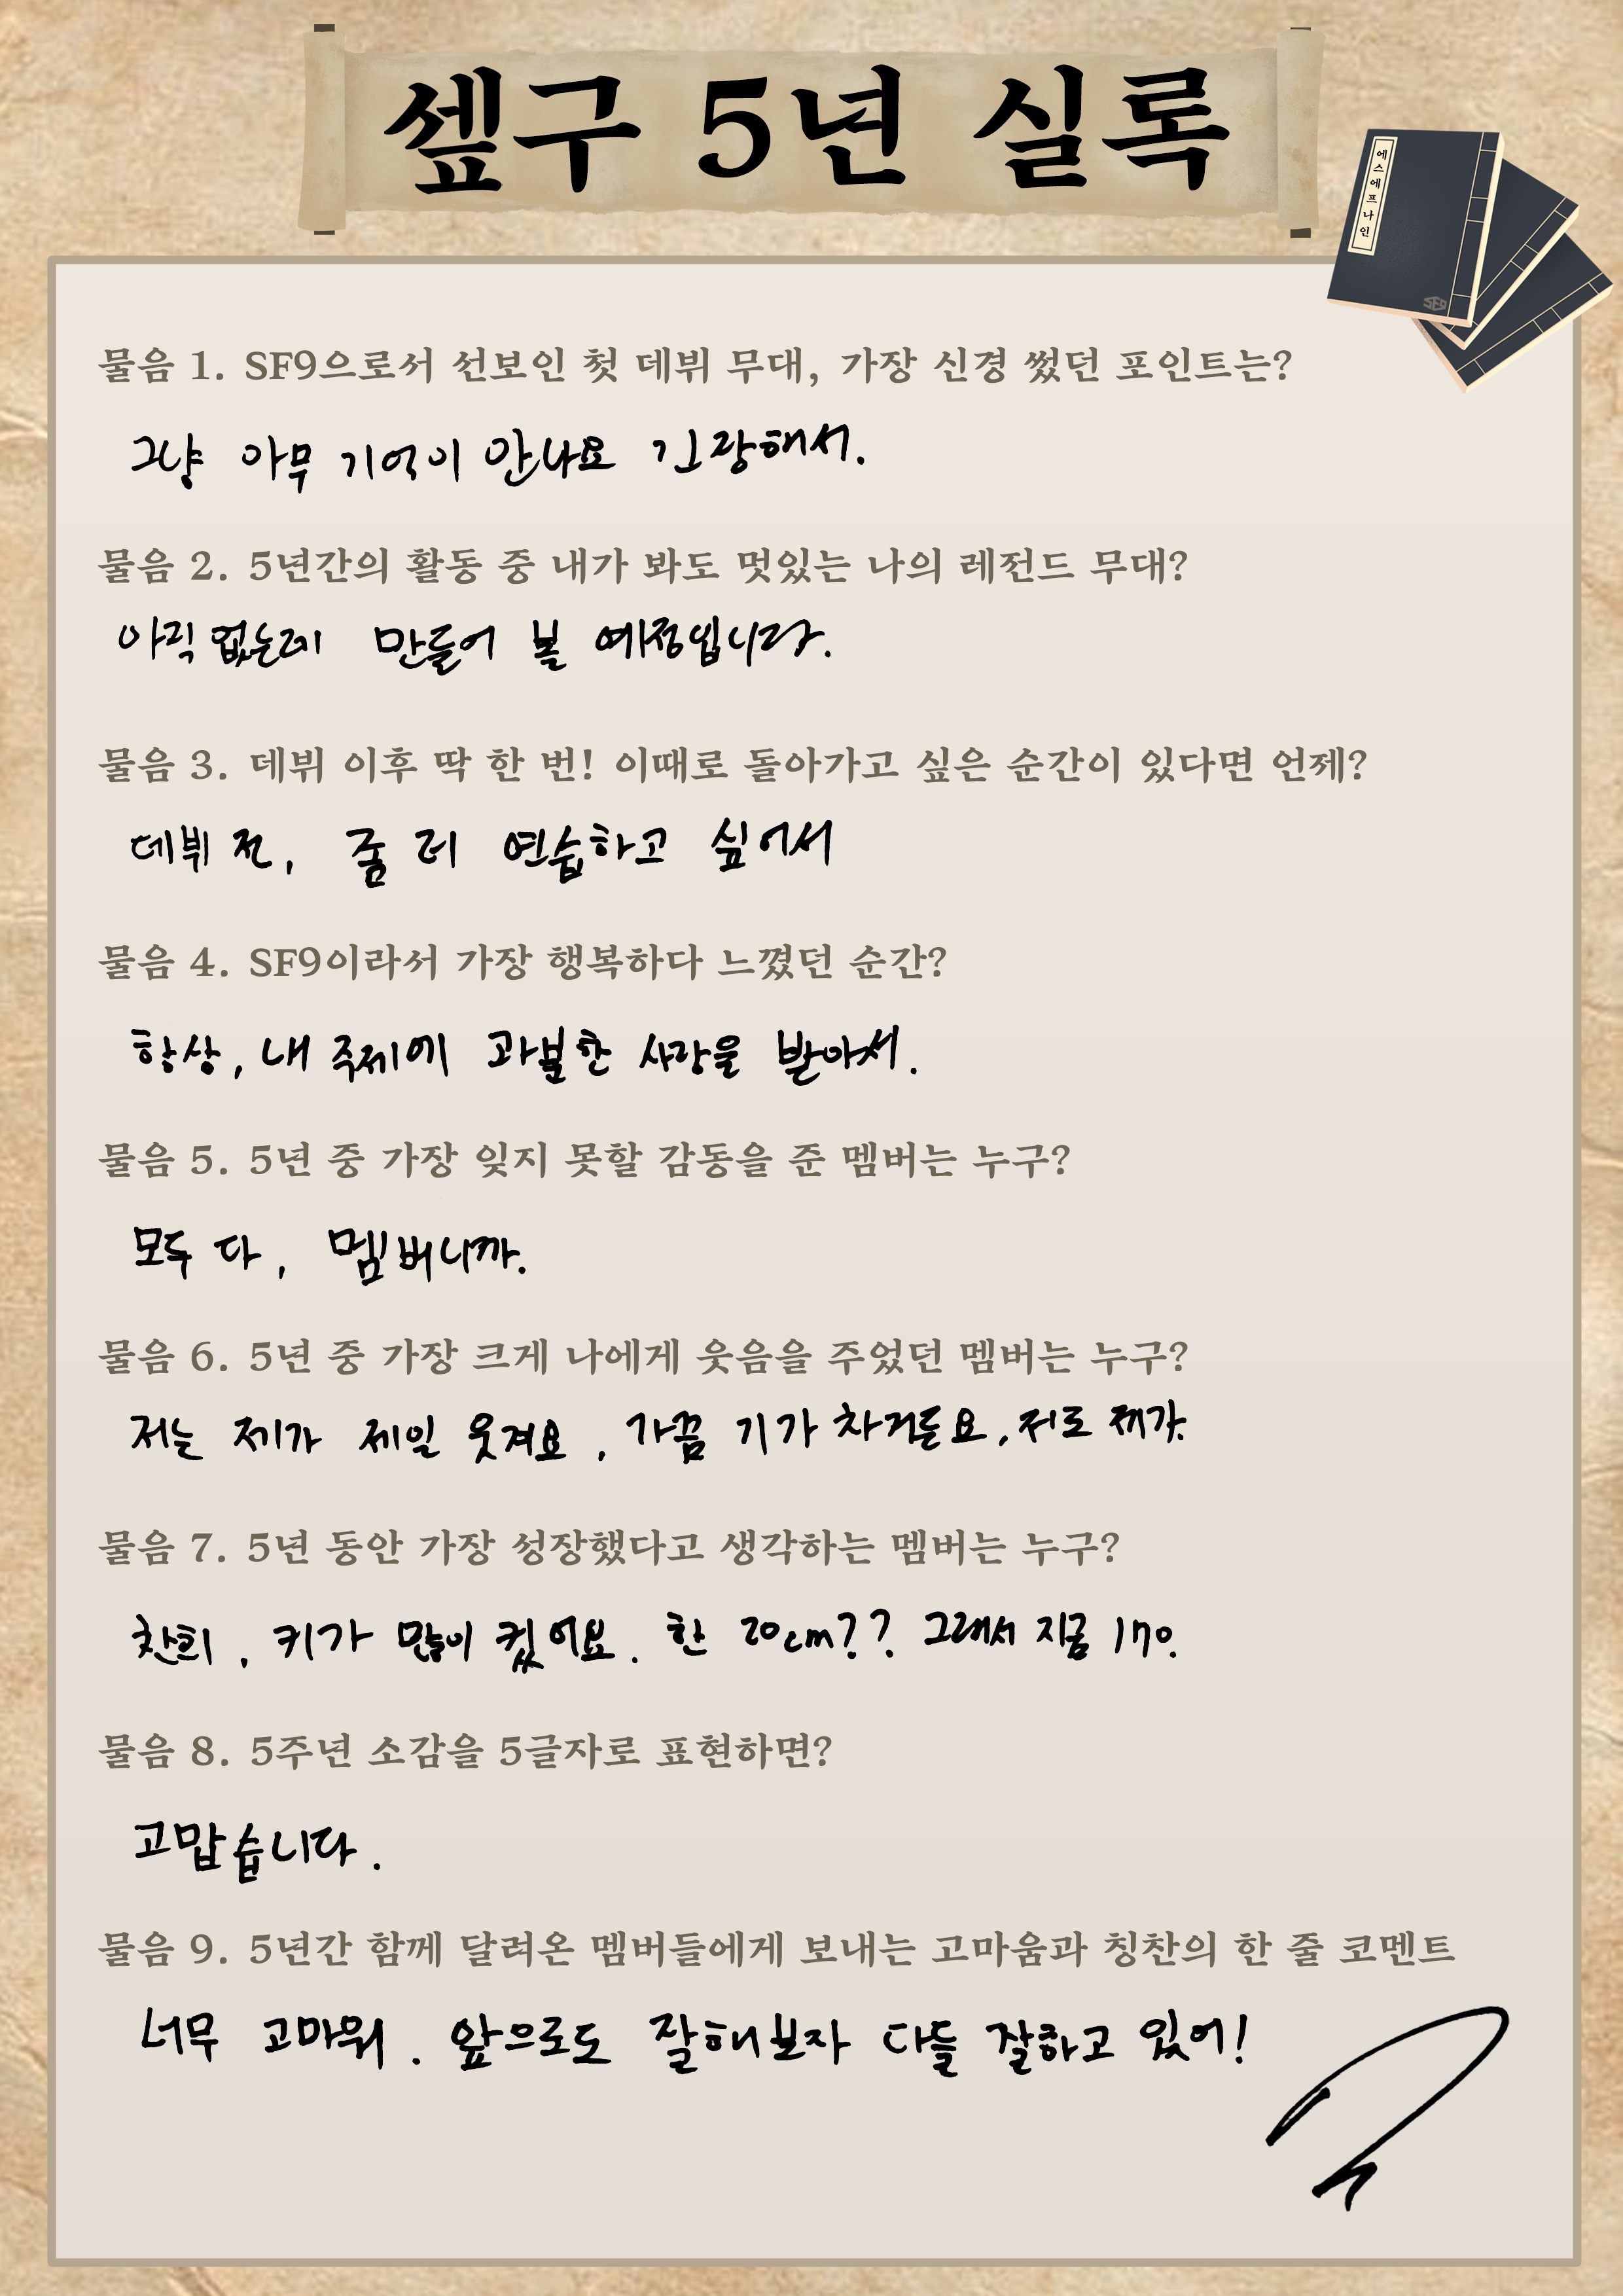 셒구 5년 실록
에스에프나인
SF9
물음 1. SF9으로서 선보인 첫 데뷔 무대, 가장 신경 썼던 포인트는?
그냥 아무 기억이 안나요 긴장해서.
물음 2. 5년간의 활동 중 내가 봐도 멋있는 나의 레전드 무대?
아직 없는데 만들어 볼 예정입니다.
물음 3. 데뷔 이후 딱 한 번! 이때로 돌아가고 싶은 순간이 있다면 언제?
데뷔 전, 더 연습하고 싶어서
물음 4. SF9이라서 가장 행복하다 느꼈던 순간?
항상, 내 주제에 과분한 사랑을 받아서.
물음 5. 5년 중 가장 잊지 못할 감동을 준 멤버는 누구?
모두 다, 멤버니까.
물음 6. 5년 중 가장 크게 나에게 웃음을 주었던 멤버는 누구?
저는 제가 제일 웃겨요, 가끔 기가 차거든요, 저도 제가.
물음 7. 5년 동안 가장 성장했다고 생각하는 멤버는 누구?
찬희, 키가 많이 컸어요. 한 20cm?? 그래서 지금 170.
물음 8. 5주년 소감을 5글자로 표현하면?
고맙습니다.
물음 9. 5년간 함께 달려온 멤버들에게 보내는 고마움과 칭찬의 한 줄 코멘트
너무 고마워. 앞으로도 잘해보자 다들 잘하고 있어!